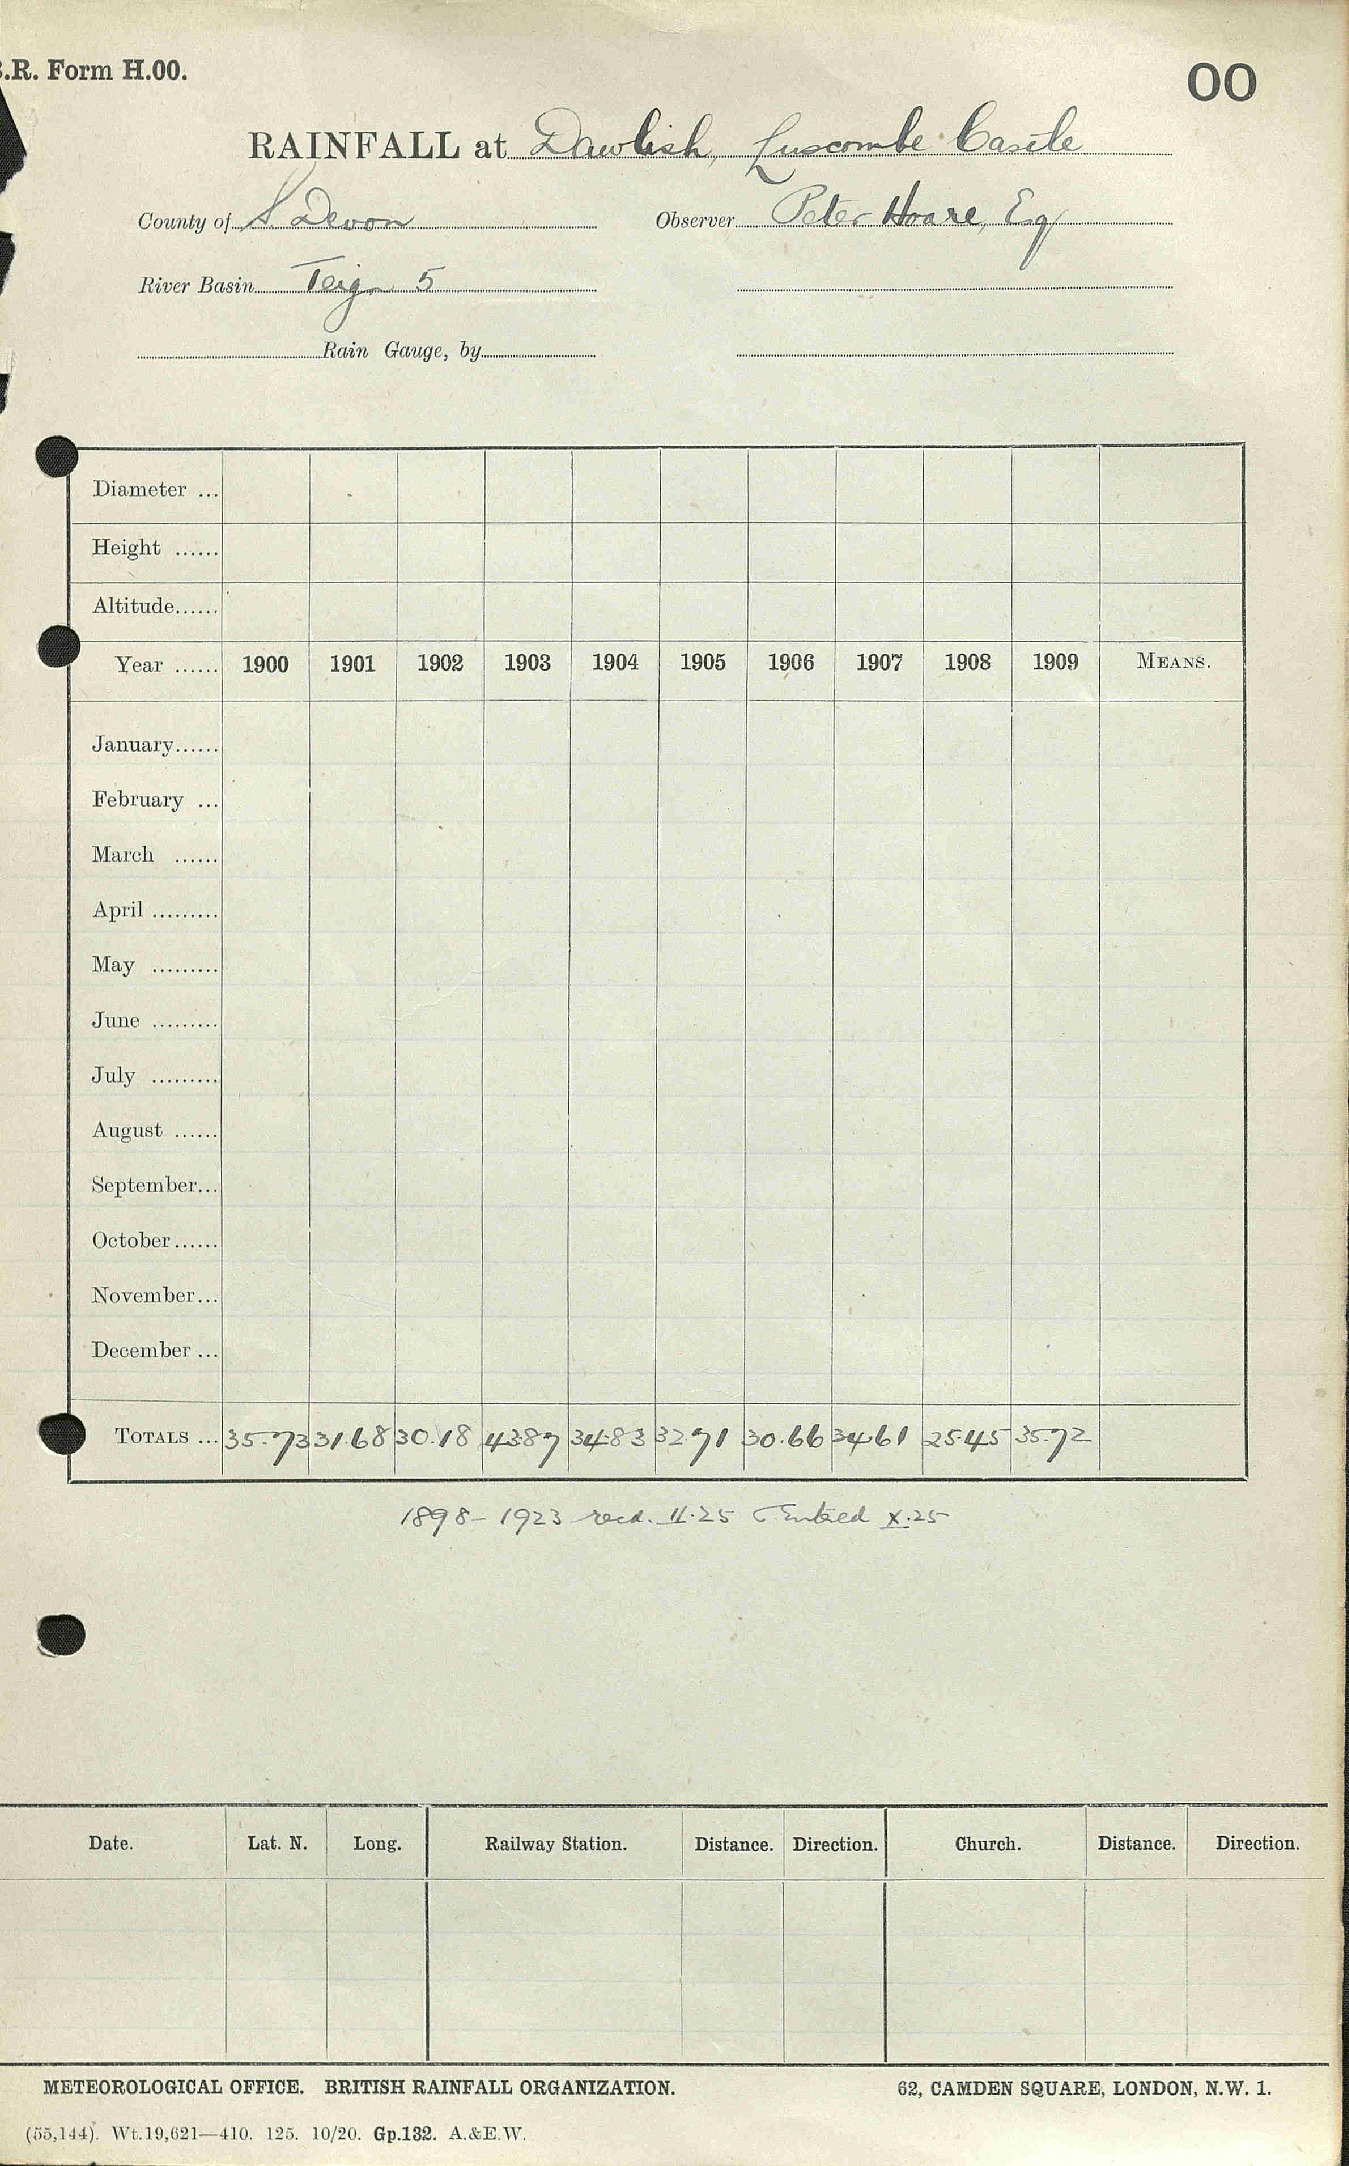 .R. Form H.00.
00
RAINFALL at Dawlish, Luscombe Castle
County of S. Devon Observer Peter Hoare, Esq
River Basin Teign 5
Rain Gauge, by
Diameter ...
Height ......
Altitude......
Year ...... 1900 1901 1902 1903 1904 1905 1906 1907 1908 1909 MEANS.
January......
February ...
March ......
April .........
May .........
June .........
July .........
August ......
September...
October......
November...
December ...
TOTALS ... 35.73 31.68 30.18 43.87 34.83 32.71 30.66 34.61 25.45 35.72
1898-1923 recd. II.25 Entered X.25
Date. Lat. N. Long. Railway Station. Distance. Direction. Church. Distance. Direction.
METEOROLOGICAL OFFICE. BRITISH RAINFALL ORGANIZATION. 62, CAMDEN SQUARE, LONDON, N.W. 1.
(55,144). Wt.19,621—410. 125. 10/20. Gp.132. A.&E.W.